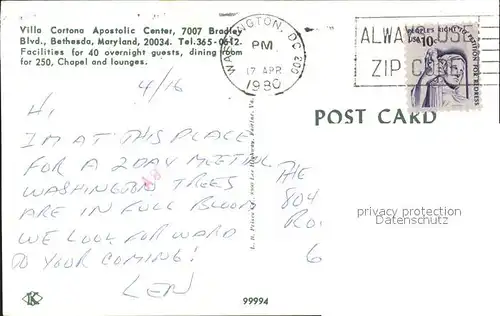 Villa Cortona Apostolic Center, 7007 Bradley
Blvd., Bethesda, Maryland, 20034. Tel.365-0612.
Facilities for 40 overnight guests, dining room
for 250, Chapel and lounges.
WASHINGTON, DC 200
PM
17 APR
1980
ALWAYS USE
ZIP CODE
PEOPLE'S RIGHT TO PETITION FOR REDRESS
USA 10c
POST CARD
4/16
HI,
I'M AT THIS PLACE
FOR A 2 DAY MEETING
WASHINGTON TREES
ARE IN FULL BLOOM
WE LOOK FORWARD
TO YOUR COMING!
LEN
THE
804
RO.
6
privacy protection
Datenschutz
K
99994